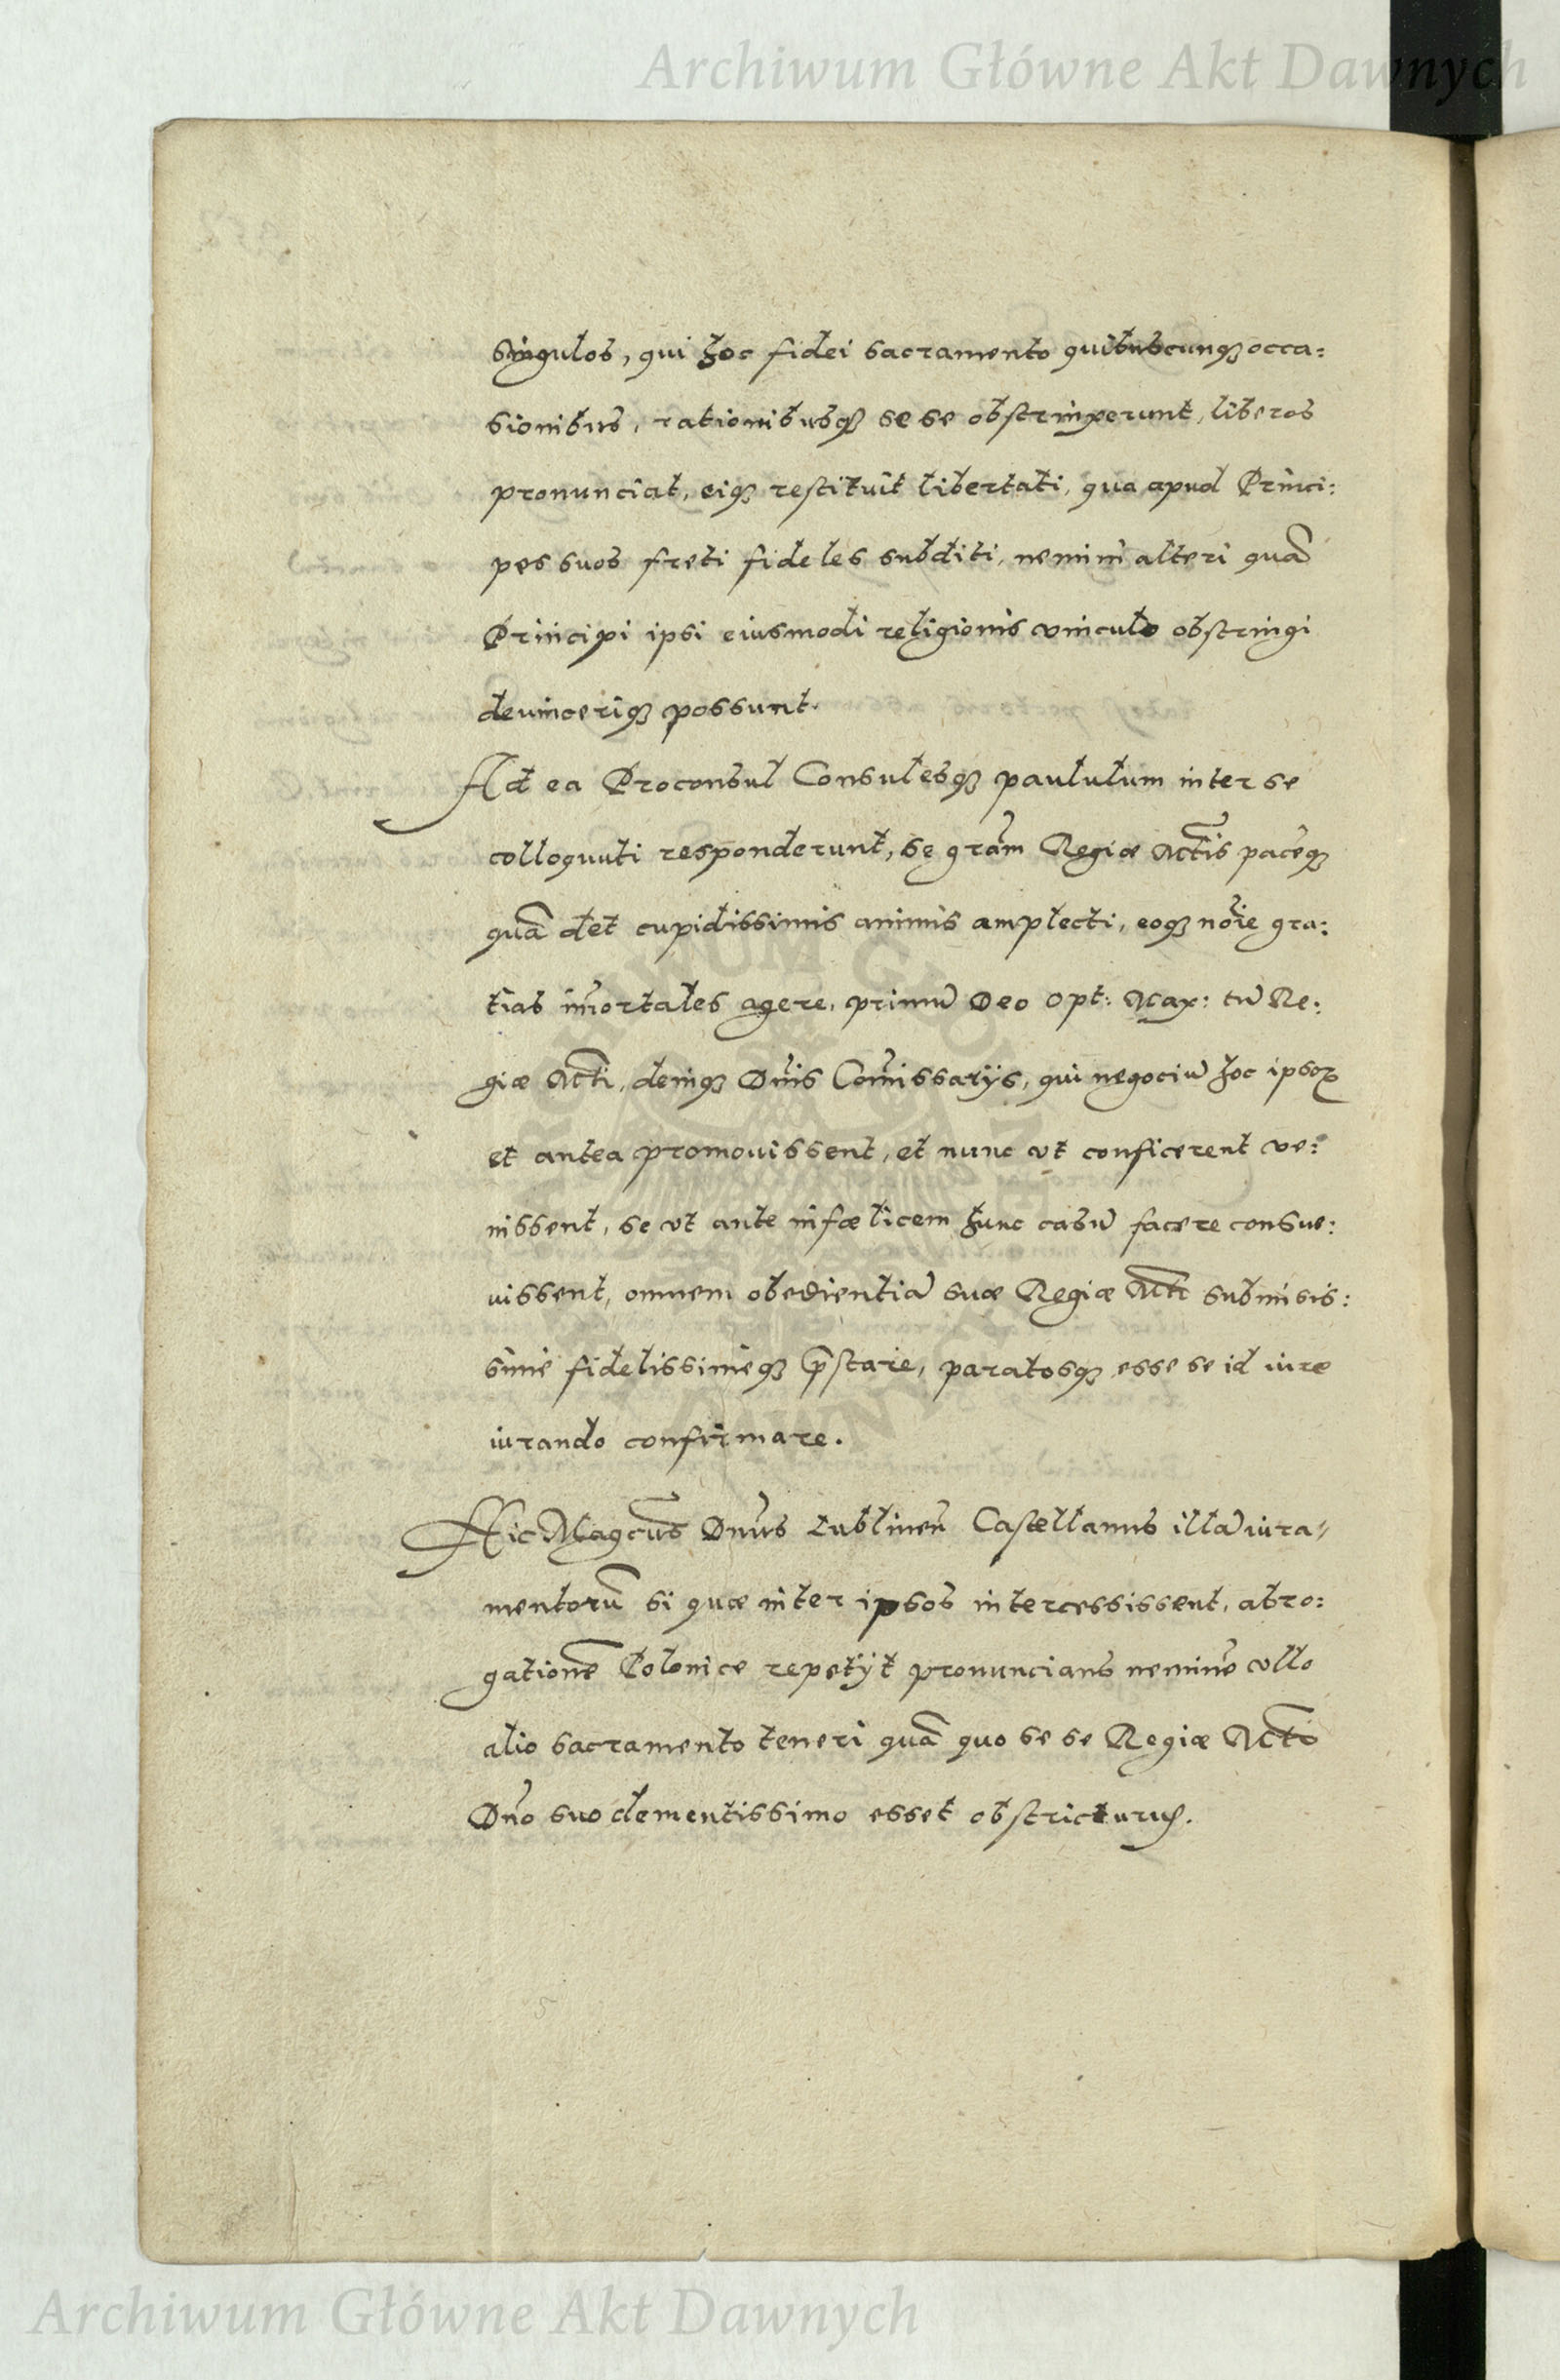 Archiwum Główne Akt Dawnych
singulos, qui hoc fidei sacramento quibuscunqꝫ occa:
sionibus, rationibusqꝫ se se obstrinxerunt, liberos
pronunciat, eiqꝫ restituit libertati, qua apud Princi:
pes suos freti fideles subditi, nemini alteri quã
Principi ipsi eiusmodi religionis vinculo obstringi
devinceriqꝫ possunt.
Ad ea Proconsul Consulesqꝫ paululum inter se
colloquuti responderunt, se grãm Regiæ Mt̃tis pacẽqꝫ
quã det cupidissimis animis amplecti, eoqꝫ noĩe gra:
tias im̃ortales agere, primũ Deo Opt: Max: tũ Re:
giæ Mt̃ti, deniqꝫ Dñis Com̃issarijs, qui negociũ hoc ipsoꝝ
et antea promovissent, et nunc vt conficerent ve:
nissent, se vt ante infœlicem hunc casũ facere consue:
vissent, omnem obedientiã suæ Regiæ Mt̃ti submisis:
sime fidelissimeqꝫ p̃stare, paratosqꝫ esse se id iure
iurando confirmare.
Hic Magcus̃ Dnũs Lublineñ Castellanus illã iura⸗
mentorũ si quæ inter ipsos intercessissent, abro:
gationẽ Polonice repetijt pronuncians neminẽ vllo
alio sacramento teneri quã quo se se Regiæ Mt̃ti
Dño suo clementissimo esset obstricturus.
ARCHIWUM GŁÓWNE AKT DAWNYCH
Archiwum Główne Akt Dawnych